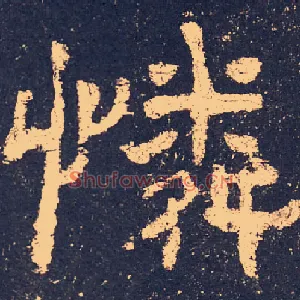 憐
Shufawang.CN